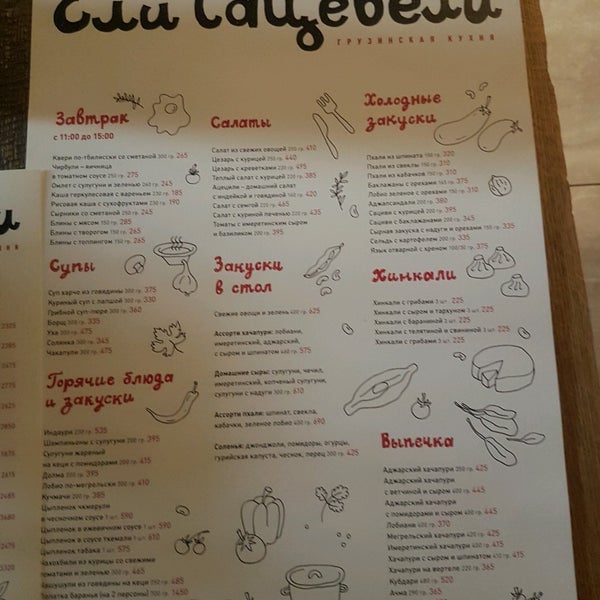 Ели Сацевели
ГРУЗИНСКАЯ КУХНЯ
Завтрак
с 11:00 до 15:00
Квери по-тбилисски со сметаной 300 гр. 265
Чирбули – яичница
в томатном соусе 250 гр. 275
Омлет с сулугуни и зеленью 260 гр. 245
Каша геркулесовая с вареньем 230 гр. 185
Рисовая каша с сухофруктами 230 гр. 190
Сырники со сметаной 250 гр. 245
Блины с мясом 150 гр. 285
Блины с творогом 150 гр. 265
Блины с топпингом 150 гр. 265
Супы
Суп харчо из говядины 300 гр. 375
Куриный суп с лапшой 300 гр. 330
Грибной суп-пюре 300 гр. 360
Борщ 300 гр. 335
Уха 300 гр. 475
Солянка 300 гр. 345
Чакапули 300 гр. 475
Горячие блюда
и закуски
Индаури 230 гр. 535
Шампиньоны с сулугуни 200 гр. 395
Сулугуни жареный
на кеци с помидорами 200 гр. 415
Долма 200 гр. 395
Лобио по-мегрельски 300 гр. 410
Кучмачи 200 гр. 385
Цыпленок чкмерули
в чесночном соусе 1 шт. 590
Цыпленок в ежевичном соусе 1 шт. 590
Цыпленок в соусе ткемали 1 шт. 610
Цыпленок табака 1 шт. 575
Чахохбили из курицы со свежими
томатами и зеленью 300 гр. 465
Чашушули из говядины на кеци 250 гр. 485
Лопатка баранья (на 2 персоны) 700 гр. 1450
Салаты
Салат из свежих овощей 250 гр. 410
Цезарь с курицей 250 гр. 440
Цезарь с креветками 220 гр. 495
Теплый салат с курицей 220 гр. 385
Ацецили – домашний салат
с индейкой и говядиной 160 гр. 420
Салат с семгой 220 гр. 465
Салат с куриной печенью 220 гр. 435
Томаты с имеретинским сыром
и базиликом 200 гр. 395
Закуски
в стол
Свежие овощи и зелень 400 гр. 625
Ассорти хачапури: лобиани,
имеретинский, аджарский,
с сыром и шпинатом 400 гр. 575
Домашние сыры: сулугуни, чечил,
имеретинский, копченый сулугуни,
сулугуни с надуги 300 гр. 610
Ассорти пхали: шпинат, свекла,
кабачки, зеленое лобио 400 гр. 690
Соленья: джонджоли, помидоры, огурцы,
гурийская капуста, чеснок, перец 300 гр. 425
Холодные
закуски
Пхали из шпината 150 гр. 320
Пхали из свеклы 150 гр. 310
Пхали из кабачков 150 гр. 310
Баклажаны с орехами 165 гр. 375
Лобио зеленое с орехами 150 гр. 310
Аджапсандали 200 гр. 380
Сациви с курицей 200 гр. 395
Сациви с баклажанами 200 гр. 345
Сырная закуска с надуги и орехами 155 гр. 335
Сельдь с картофелем 200 гр. 335
Язык отварной с хреном 100/30 гр. 375
Хинкали
Хинкали с грибами 3 шт. 225
Хинкали с сыром и тархуном 3 шт. 225
Хинкали с бараниной 3 шт. 225
Хинкали с телятиной и свининой 3 шт. 225
Хинкали с грибами 3 шт. 225
Выпечка
Аджарский хачапури 350 гр. 425
Аджарский хачапури
с ветчиной и сыром 400 гр. 445
Аджарский хачапури
с помидорами и сыром 400 гр. 445
Лобиани 400 гр. 370
Мегрельский хачапури 400 гр. 425
Имеретинский хачапури 400 гр. 415
Хачапури с сыром и шпинатом 410 гр. 415
Хачапури на вертеле 220 гр. 365
Кубдари 480 гр. 520
Ачма 290 гр. 365